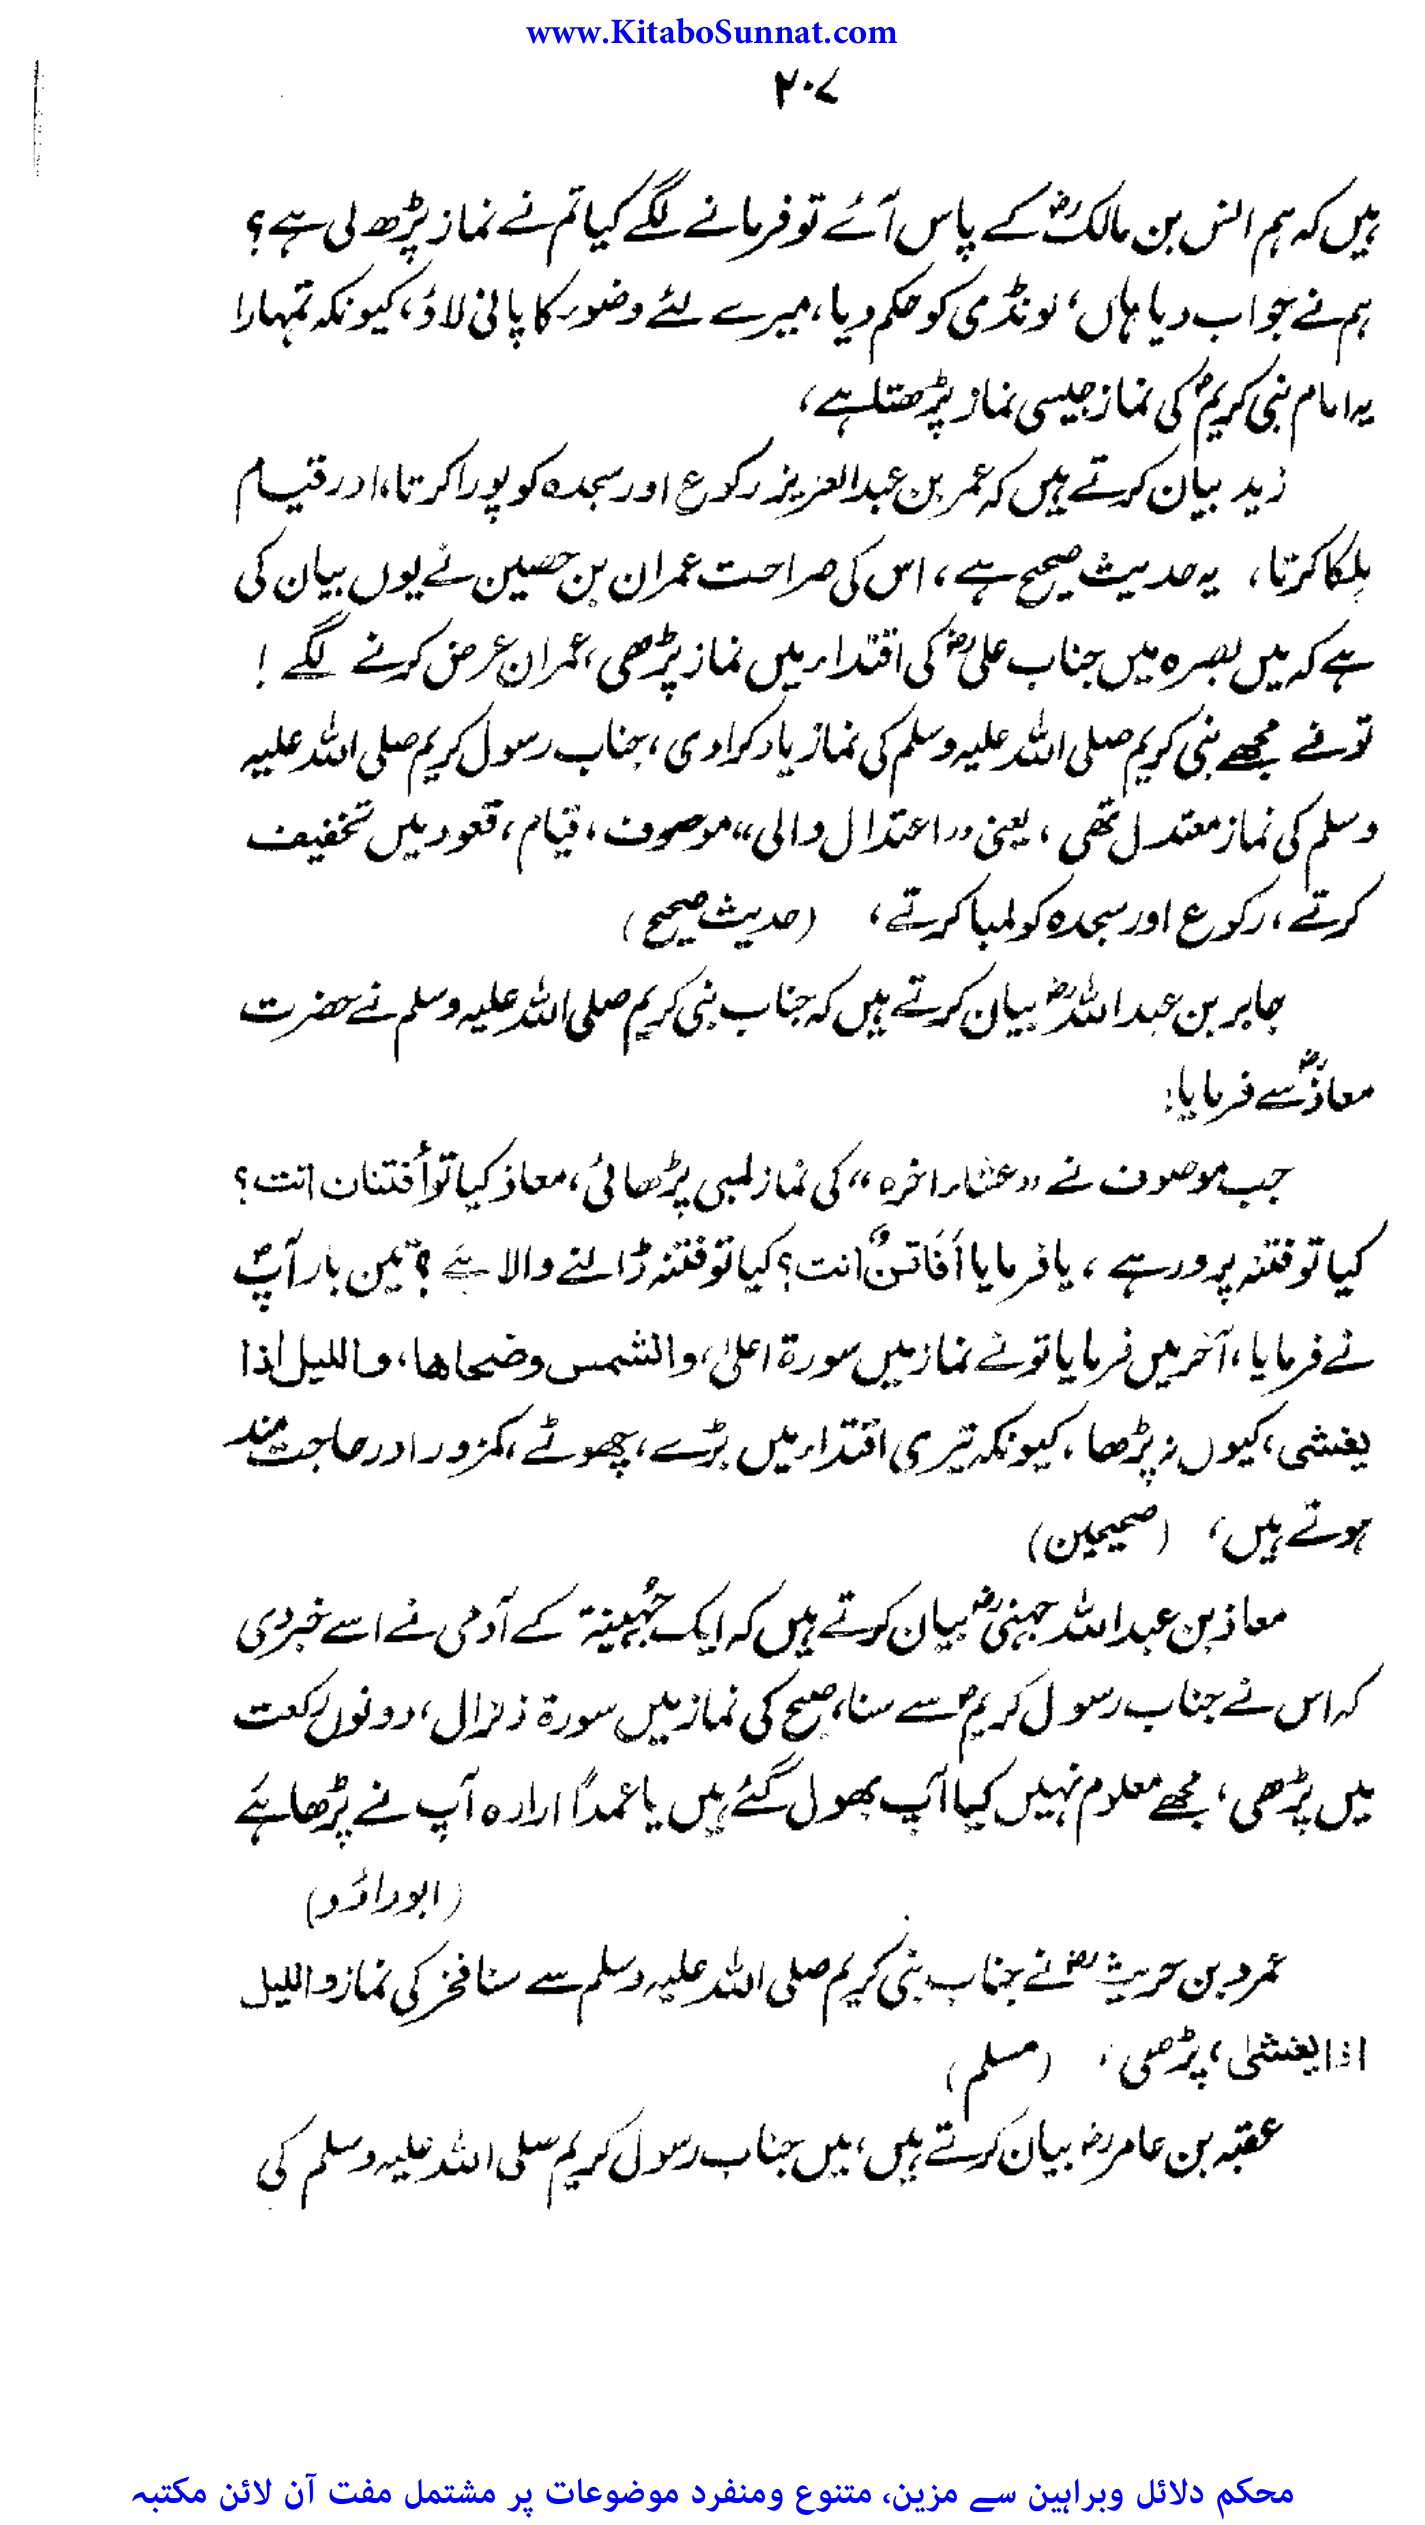 www.KitaboSunnat.com
۲۰۷
ہیں کہ ہم انس بن مالکؓ کے پاس آئے تو فرمانے لگے کیا تم نے نماز پڑھ لی ہے؟
ہم نے جواب دیا ہاں، لونڈی کو حکم دیا، میرے لئے وضور کا پانی لاؤ، کیونکہ تمہارا
یہ امام نبی کریمؐ کی نماز جیسی نماز پڑھتا ہے،
زید بیان کرتے ہیں کہ عمر بن عبدالعزیز رکوع اور سجدہ کو پورا کرتا، اور قیام
ہلکا کرتا، یہ حدیث صحیح ہے، اس کی صراحت عمران بن حصین نے یوں بیان کی
ہے کہ میں بصرہ میں جناب علیؓ کی اقتداء میں نماز پڑھی، عمران عرض کرنے لگے !
تونے مجھے نبی کریم صلی اللہ علیہ وسلم کی نماز یاد کرادی، جناب رسول کریم صلی اللہ علیہ
وسلم کی نماز معتدل تھی، یعنی ،،اعتدال والی،، موصوف، قیام، قعود میں تخفیف
کرتے، رکوع اور سجدہ کو لمبا کرتے، (حدیث صحیح)
جابر بن عبداللہؓ بیان کرتے ہیں کہ جناب نبی کریم صلی اللہ علیہ وسلم نے حضرت
معاذؓ سے فرمایا:
جب موصوف نے ،،عشاء اخرہ،، کی نماز لمبی پڑھائی، معاذ کیا تو أفتنان انت؟
کیا تو فتنہ پرور ہے، یا فرمایا أَفَاتنٌ انت؟ کیا تو فتنہ ڈالنے والا ہے؟ تین بار آپؐ
نے فرمایا، آخر میں فرمایا تونے نماز میں سورۃ اعلیٰ، والشمس وضحاھا، واللیل اذا
یغشی، کیوں نہ پڑھا، کیونکہ تیری اقتداء میں بڑے، چھوٹے، کمزور اور حاجت مند
ہوتے ہیں، (صحیحین)
معاذ بن عبداللہ جہنیؓ بیان کرتے ہیں کہ ایک جُہینۃ کے آدمی نے اسے خبر دی
کہ اس نے جناب رسول کریمؐ سے سنا، صبح کی نماز میں سورۃ زلزال، دونوں رکعت
میں پڑھی، مجھے معلوم نہیں کیا آپ بھول گئے ہیں یا عمداً ارادہ آپ نے پڑھا ہے
(ابوداؤد)
عمرو بن حریثؓ نے جناب نبی کریم صلی اللہ علیہ وسلم سے سنا فجر کی نماز واللیل
اذا یغشیٰ، پڑھی، (مسلم)
عقبہ بن عامرؓ بیان کرتے ہیں، میں جناب رسول کریم صلی اللہ علیہ وسلم کی
محکم دلائل وبراہین سے مزین، متنوع ومنفرد موضوعات پر مشتمل مفت آن لائن مکتبہ